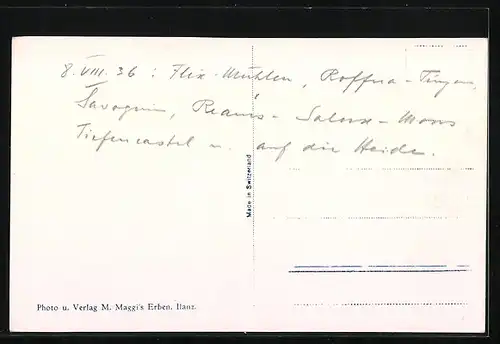 8. VIII. 36 : Flix - Mühlen, Roffna - Tinzen,
Savognin, Reams - Salux - Mons
Tiefencastel u. auf die Heide.
Made in Switzerland
Photo u. Verlag M. Maggi's Erben, Ilanz.